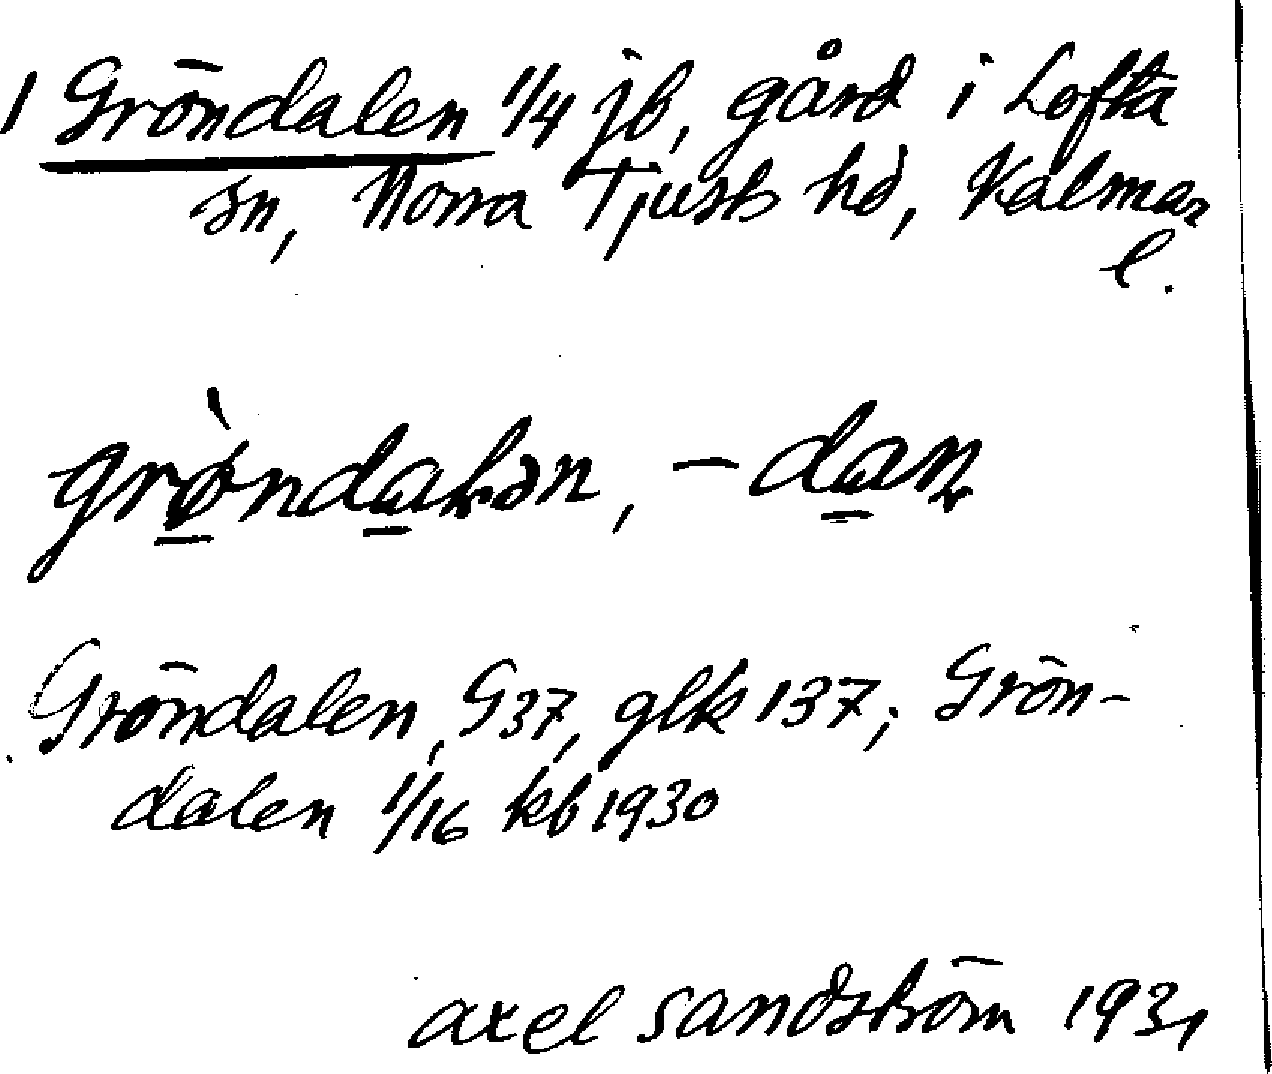 1 Gröndalen 1/4 jb, gård i Lofta
sn, Norra Tjusts hd, Kalmar
l.
grø̀ndalən, -dan
Gröndalen, G37, glk 137; Grön-
dalen 1/16 kb 1930
axel sandström 1931